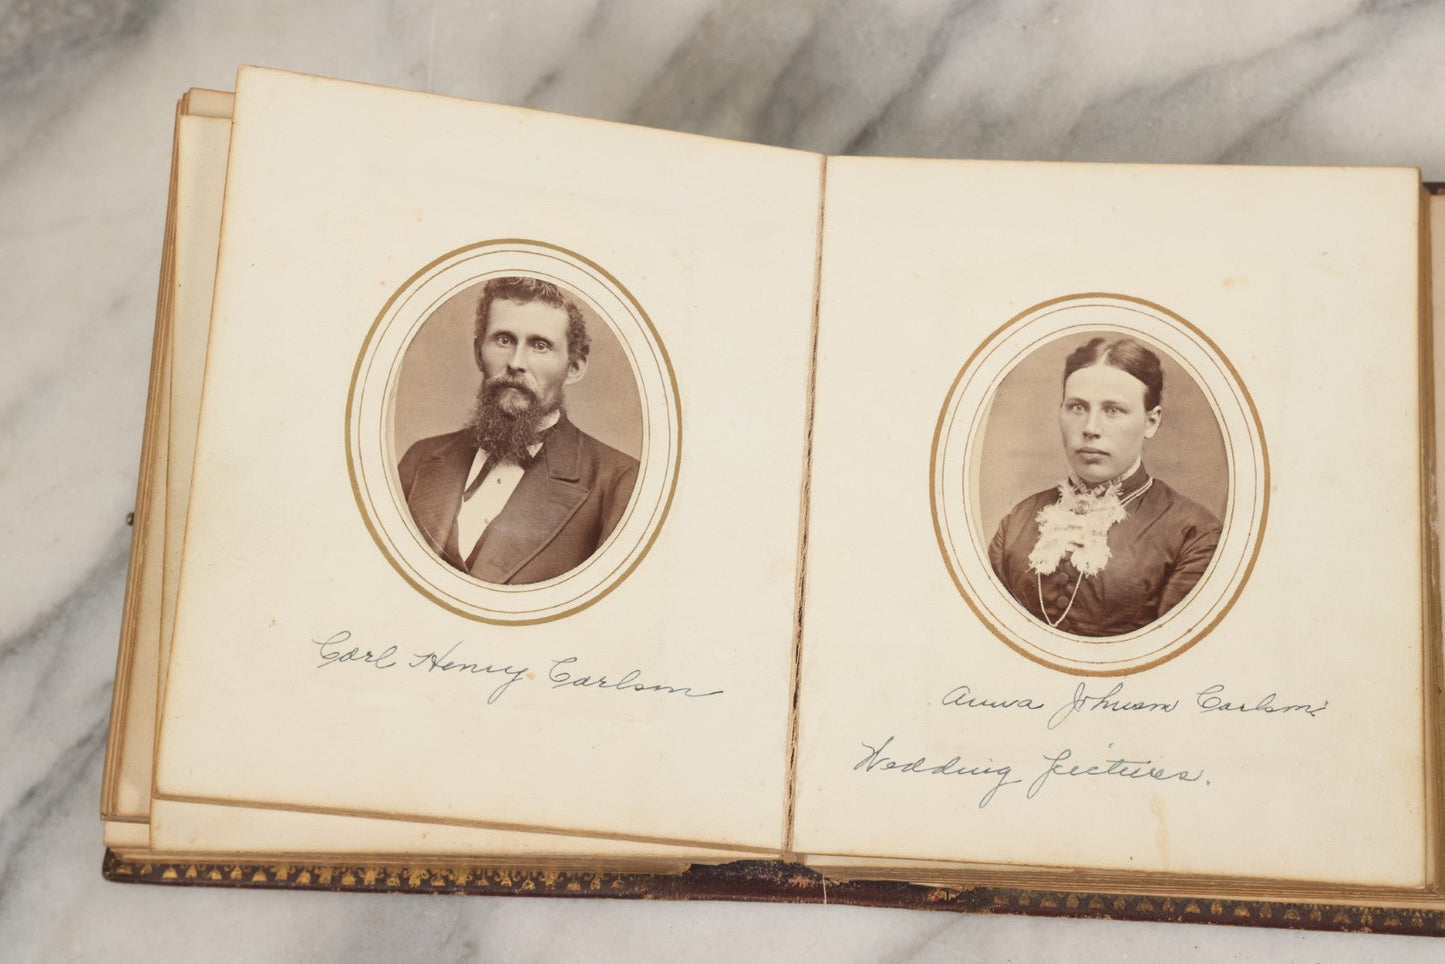 Carl Henry Carlson
Anna Johnson Carlson
Wedding pictures.